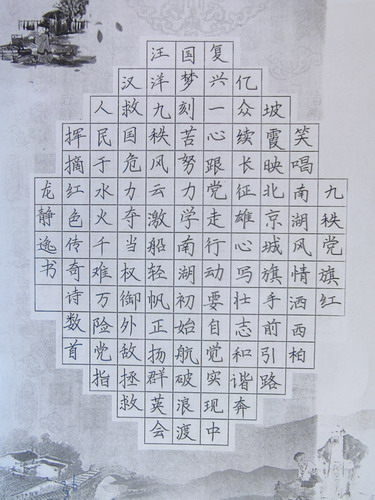 九秩党旗红
笑唱南湖风情洒西柏
坡霞映北京城旗手前引路
亿众续长征雄心写壮志和谐奔
复兴一心跟党走行动要自觉实现中
国梦刻苦努力学南湖初始航破浪渡
汪洋九秩风云激船轻帆正扬群英会
汉救国危力夺当权御外敌拯救
人民于水火千难万险党指
挥摘红色传奇诗数首
龙静逸书